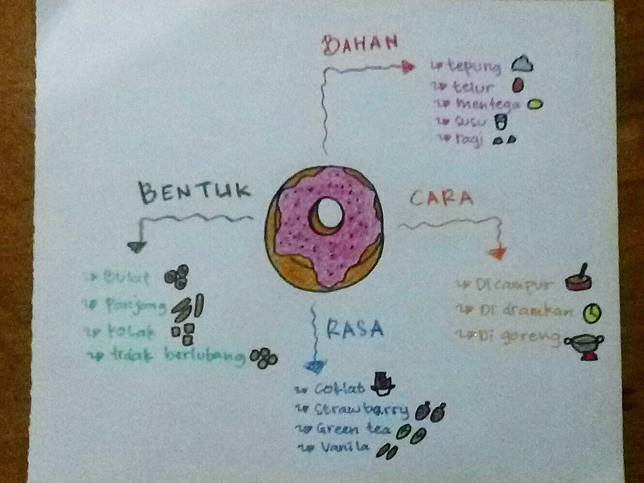 BAHAN
tepung
telur
mentega
susu
ragi
BENTUK
Bulat
Panjang
kotak
tidak berlubang
CARA
Di campur
Di dramkan
Di goreng
RASA
Coklat
Strawbarry
Green tea
Vanila